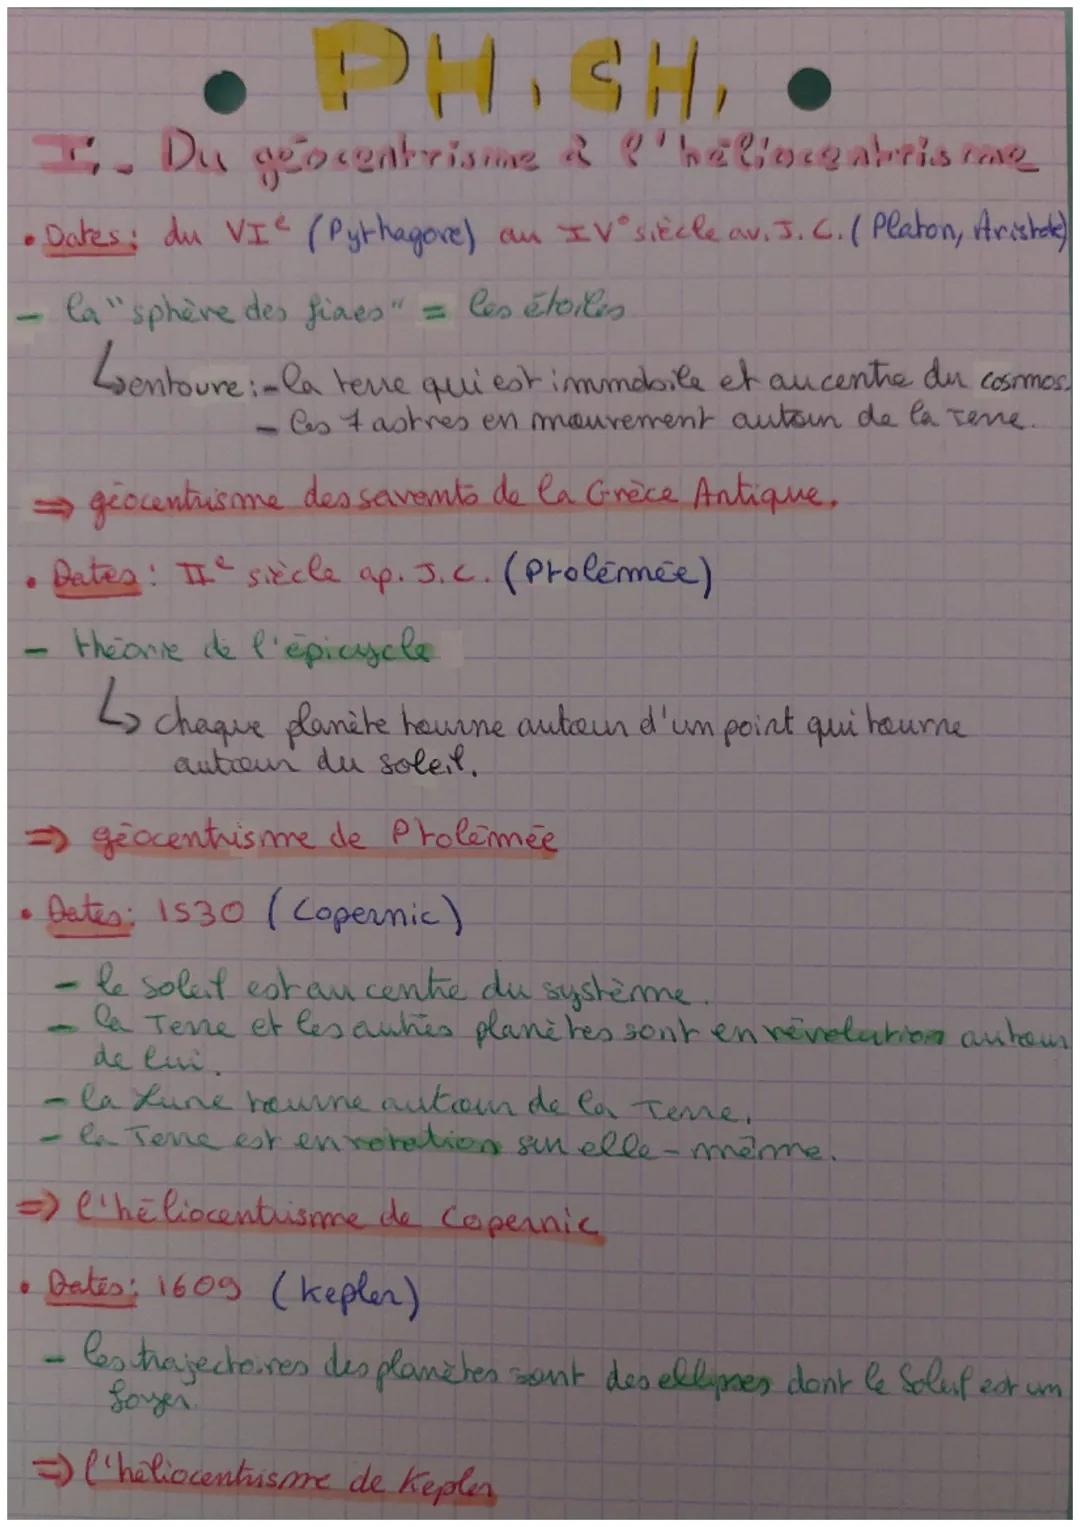 PH.CH.
I. - Du géocentrisme à l'héliocentrisme
• Dates : du VIe (Pythagore) au IV° siècle av. J. C. (Platon, Aristote)
- la "sphère des fixes" = les étoiles
↳ entoure : - la terre qui est immobile et au centre du cosmos.
- les 7 astres en mouvement autour de la Terre.
⇒ géocentrisme des savants de la Grèce Antique.
• Dates : IIe siècle ap. J.C. (Ptolémée)
- théorie de l'épicycle
↳ chaque planète tourne autour d'un point qui tourne
autour du soleil.
⇒ géocentrisme de Ptolémée
• Dates : 1530 (Copernic)
- le soleil est au centre du système.
- la Terre et les autres planètes sont en révolution autour
de lui.
- la Lune tourne autour de la Terre.
- la Terre est en rotation sur elle-même.
⇒ l'héliocentrisme de Copernic
• Dates : 1609 (Kepler)
- les trajectoires des planètes sont des ellipses dont le Soleil est un
foyer.
⇒ l'héliocentrisme de Kepler